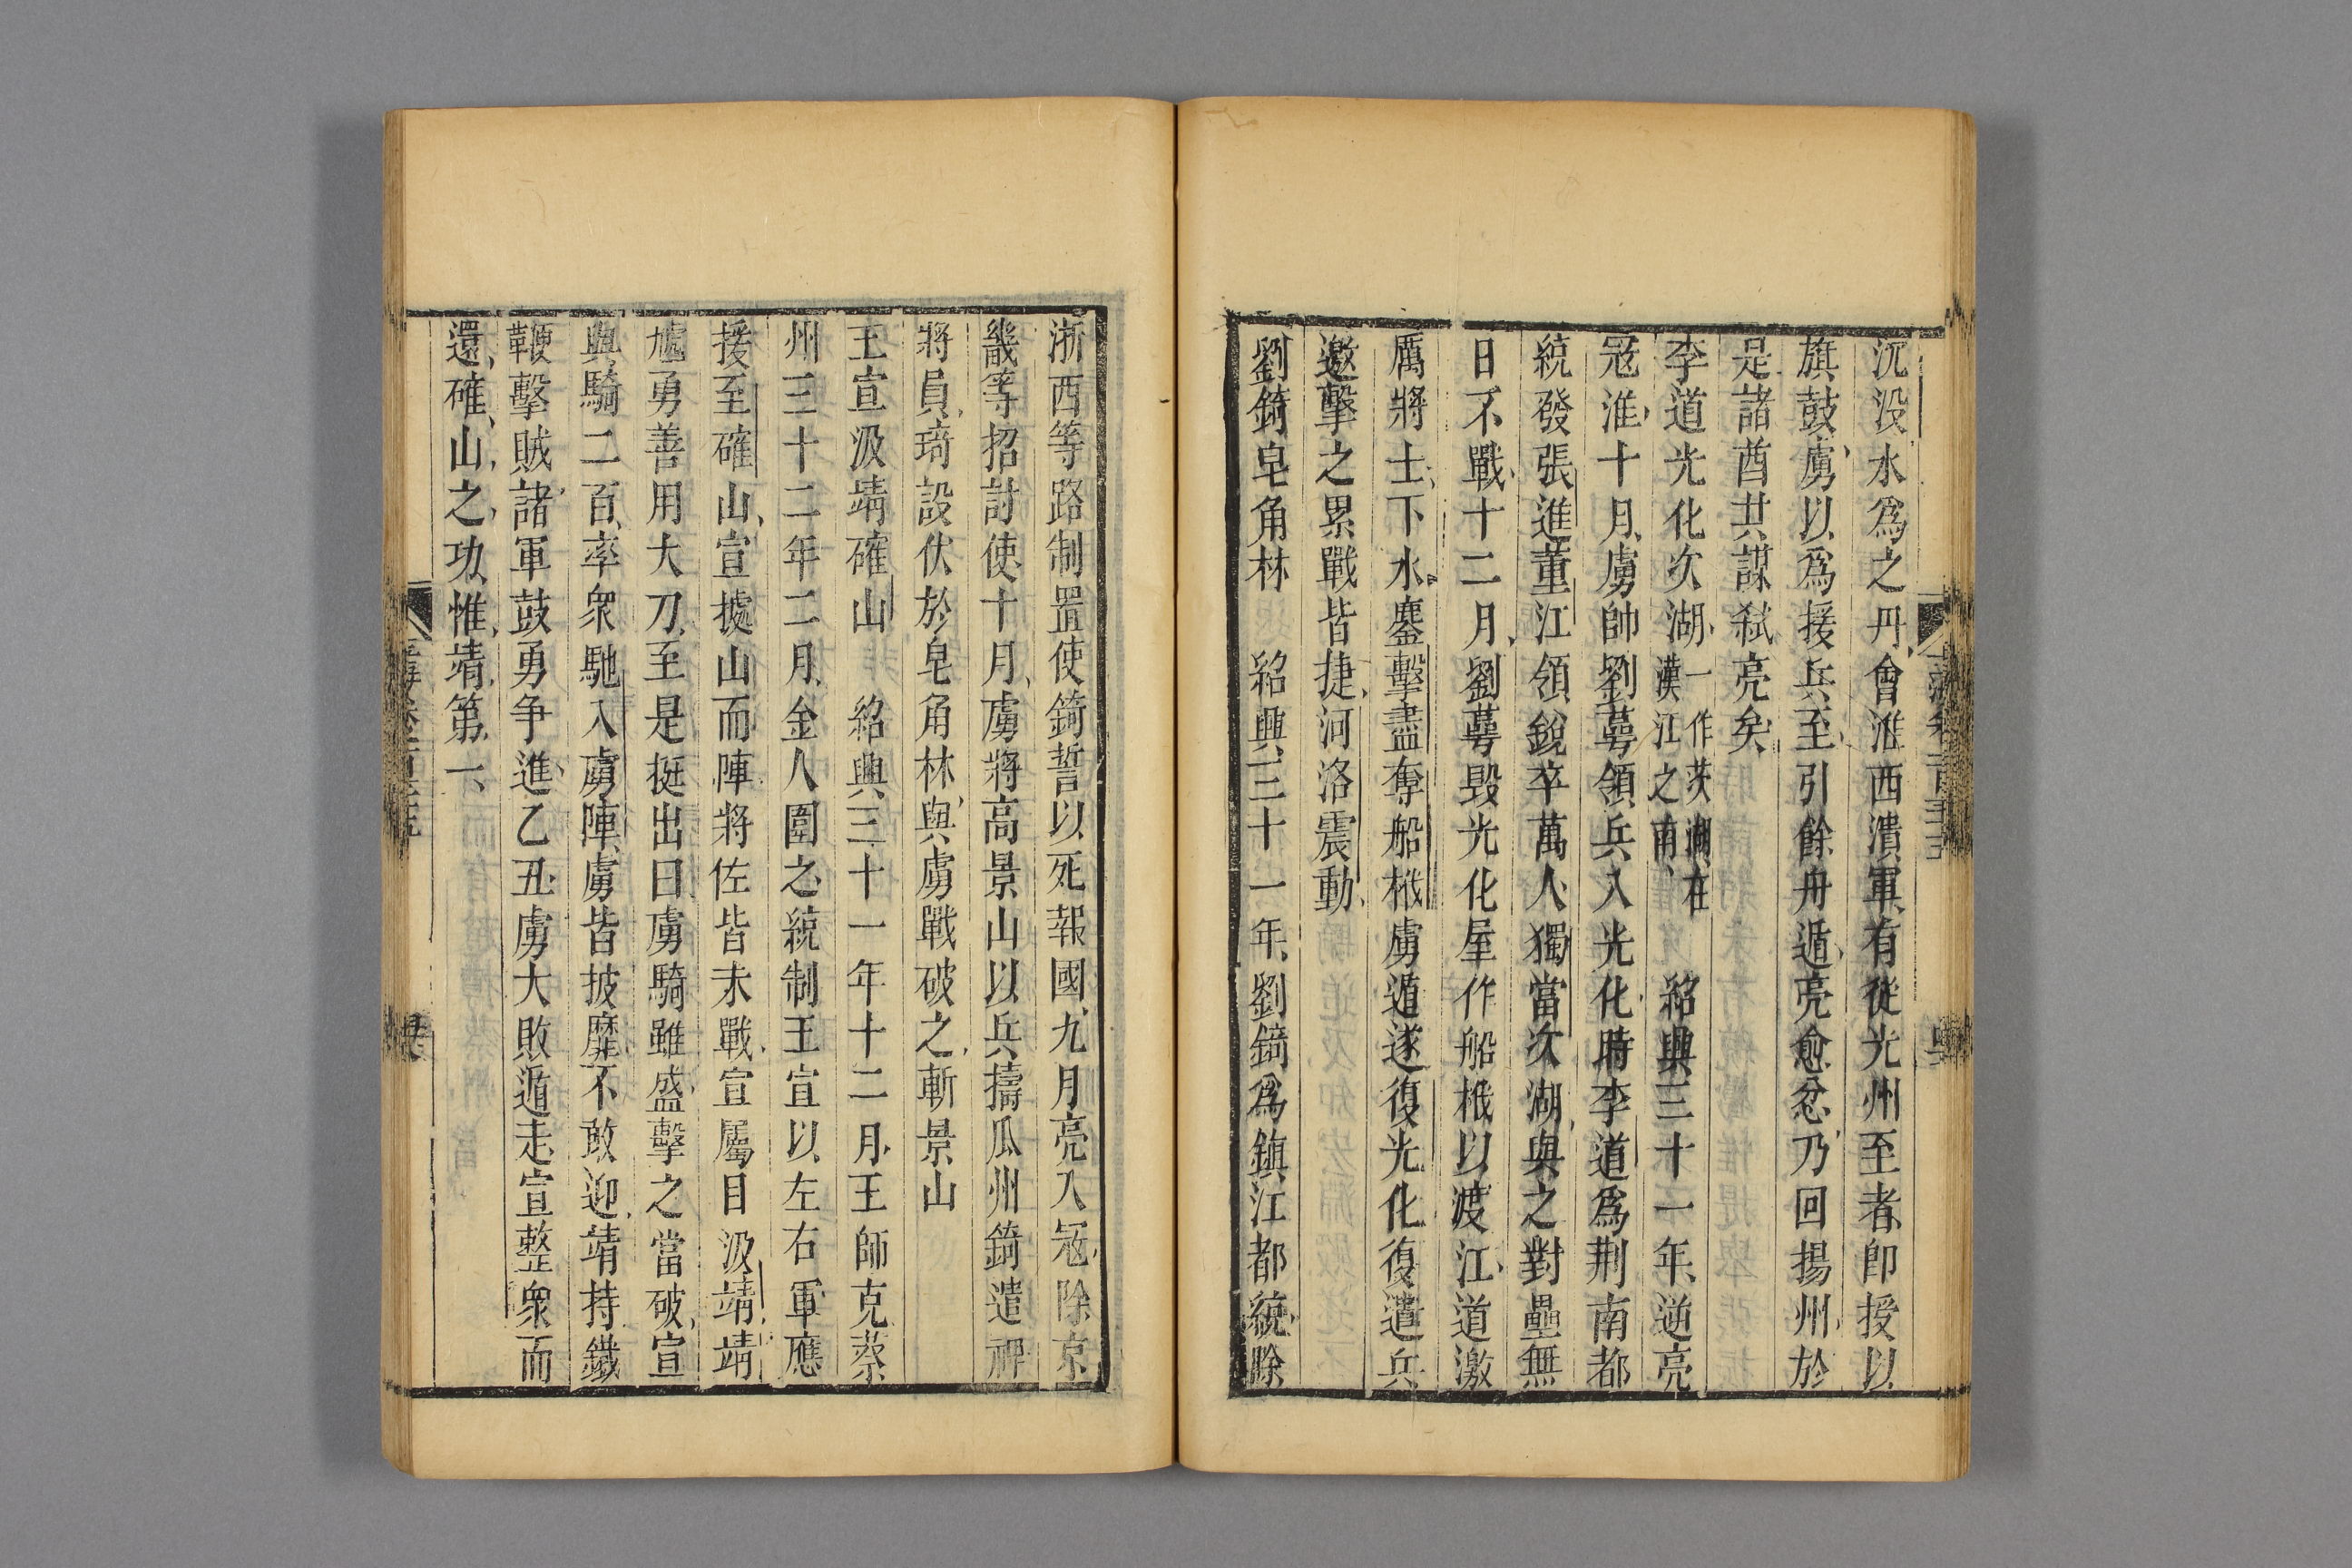 沉没水爲之丹會淮西潰軍有從光州至者卽授以
旗鼓虜以爲援兵至引餘舟遁亮愈忿乃回揚州於
是諸酋共謀弑亮矣
李道光化次湖一作茨湖在漢江之南 紹興三十一年逆亮
冦淮十月虜帥劉萼領兵入光化時李道爲荆南都
統發張進董江領銳卒萬人獨當次湖與之對壘無
日不戰十二月劉萼毁光化屋作船栰以渡江道激
厲將士下水鏖擊盡奪船栰虜遁遂復光化復遣兵
邀擊之累戰皆捷河洛震動
劉錡皂角林 紹興三十一年劉錡爲鎮江都統除
浙西等路制置使錡誓以死報國九月亮入冦除京
畿等招討使十月虜將高景山以兵擣瓜州錡遣裨
將員琦設伏於皂角林與虜戰破之斬景山
王宣汲靖確山 紹興三十一年十二月王師克蔡
州三十二年二月金人圍之統制王宣以左右軍應
援至確山宣據山而陣將佐皆未戰宣屬目汲靖靖
㢠勇善用大刀至是挺出曰虜騎雖盛擊之當破宣
與騎二百率衆馳入虜陣虜皆披靡不敢迎靖持鐵
鞭擊賊諸軍鼓勇争進乙丑虜大敗遁走宣整衆而
還確山之功惟靖第一